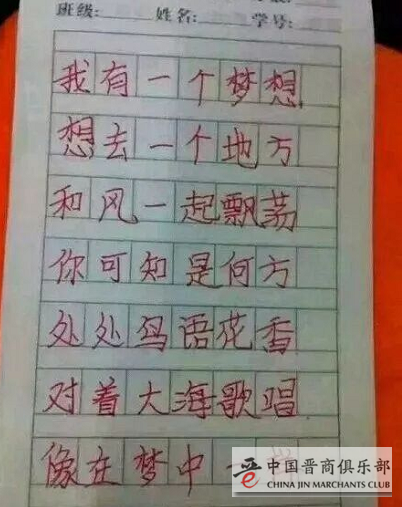 班级: 姓名: 学号:
我有一个梦想
想去一个地方
和风一起飘荡
你可知是何方
处处鸟语花香
对着大海歌唱
像在梦中
中国晋商俱乐部
CHINA JIN MARCHANTS CLUB